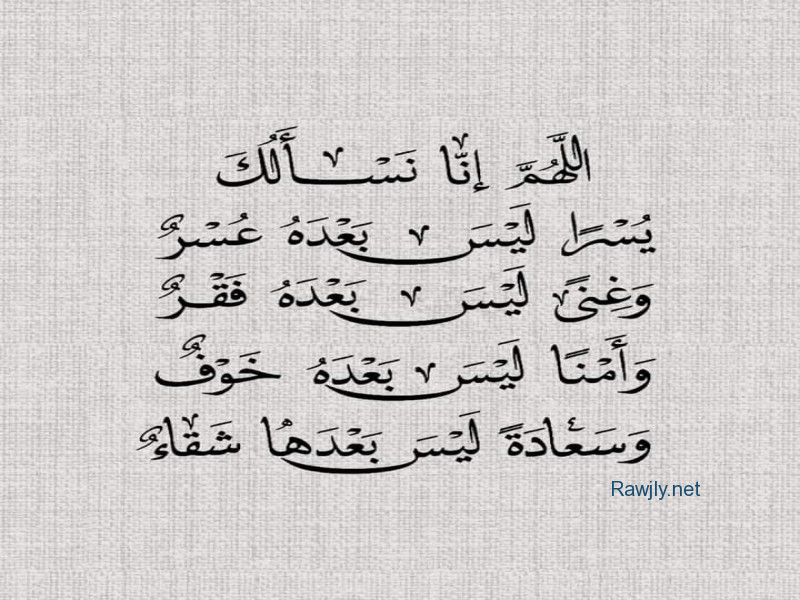 اللَّهُمَّ إِنَّا نَسْأَلُكَ
يُسْرًا لَيْسَ بَعْدَهُ عُسْرٌ
وَغِنىً لَيْسَ بَعْدَهُ فَقْرٌ
وَأَمْنًا لَيْسَ بَعْدَهُ خَوْفٌ
وَسَعَادَةً لَيْسَ بَعْدَهَا شَقَاءٌ
Rawjly.net